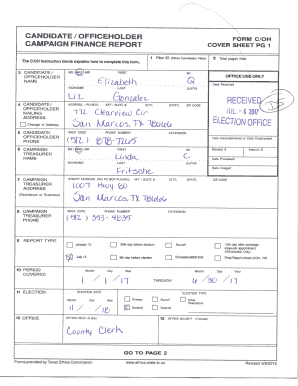 CANDIDATE / OFFICEHOLDER
CAMPAIGN FINANCE REPORT
FORM C/OH
COVER SHEET PG 1
The C/OH Instruction Guide explains how to complete this form.
1 Filer ID (Ethics Commission Filers)
2 Total pages filed:
3 CANDIDATE / OFFICEHOLDER NAME
MS / MRS / MR FIRST MI
Elizabeth Q
NICKNAME LAST SUFFIX
Liz Gonzalez
OFFICE USE ONLY
Date Received
RECEIVED
JUL - 6 2017
ELECTION OFFICE
4 CANDIDATE / OFFICEHOLDER MAILING ADDRESS
Change of Address
ADDRESS / PO BOX; APT / SUITE #; CITY; STATE; ZIP CODE
772 Clearview Cir
San Marcos, TX 78666
5 CANDIDATE / OFFICEHOLDER PHONE
AREA CODE PHONE NUMBER EXTENSION
(512) 878-7265
Date Hand-delivered or Date Postmarked
6 CAMPAIGN TREASURER NAME
MS / MRS / MR FIRST MI
Linda C.
NICKNAME LAST SUFFIX
Fritsche
Receipt # Amount $
Date Processed
Date Imaged
7 CAMPAIGN TREASURER ADDRESS
(Residence or Business)
STREET ADDRESS (NO PO BOX PLEASE); APT / SUITE #; CITY; STATE; ZIP CODE
1007 Hwy 80
San Marcos, TX 78666
8 CAMPAIGN TREASURER PHONE
AREA CODE PHONE NUMBER EXTENSION
(512) 393-4635
9 REPORT TYPE
January 15
30th day before election
Runoff
15th day after campaign treasurer appointment (Officeholder Only)
July 15
8th day before election
Exceeded $500 limit
Final Report (Attach C/OH - FR)
10 PERIOD COVERED
Month Day Year
1 / 1 / 17
THROUGH
Month Day Year
6 / 30 / 17
11 ELECTION
ELECTION DATE
Month Day Year
11 / / 18
ELECTION TYPE
Primary
Runoff
Other Description
General
Special
12 OFFICE
OFFICE HELD (if any)
County Clerk
13 OFFICE SOUGHT (if known)
GO TO PAGE 2
Forms provided by Texas Ethics Commission
www.ethics.state.tx.us